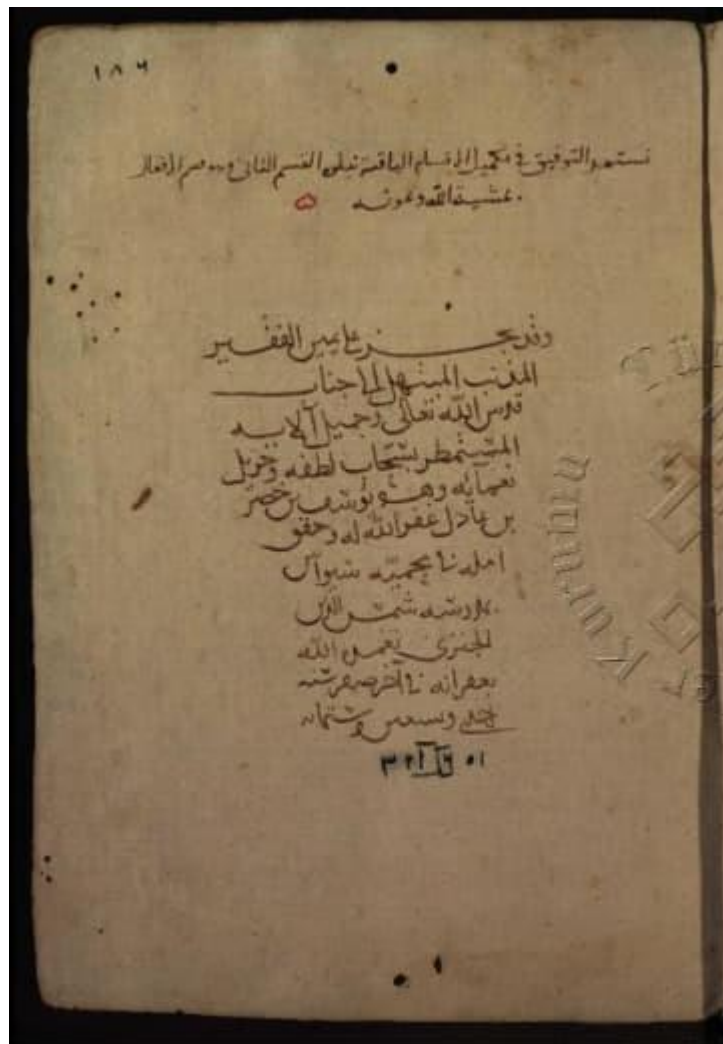 ١٨٦
نستمد التوفيق في تكميل الاقسام الباقية تعلى القسم الثاني وهو قسم الافعال
بمشية الله وعونه
وقد نجز على يمين الفقير
المذنب المبتهل الى جناب
قدس الله تعالى وجميل آلايه
المستمطر سحاب لطفه وجزيل
نعمايه وهو يوسف بن خضر
بن عادل غفر الله له وحقق
امله نا بمحمد شوال
بمدرسة شمس الدين
الجنزي تغمده الله
بغفرانه في آخر صفر سنه
وسبعين وستمايه
Kurumu